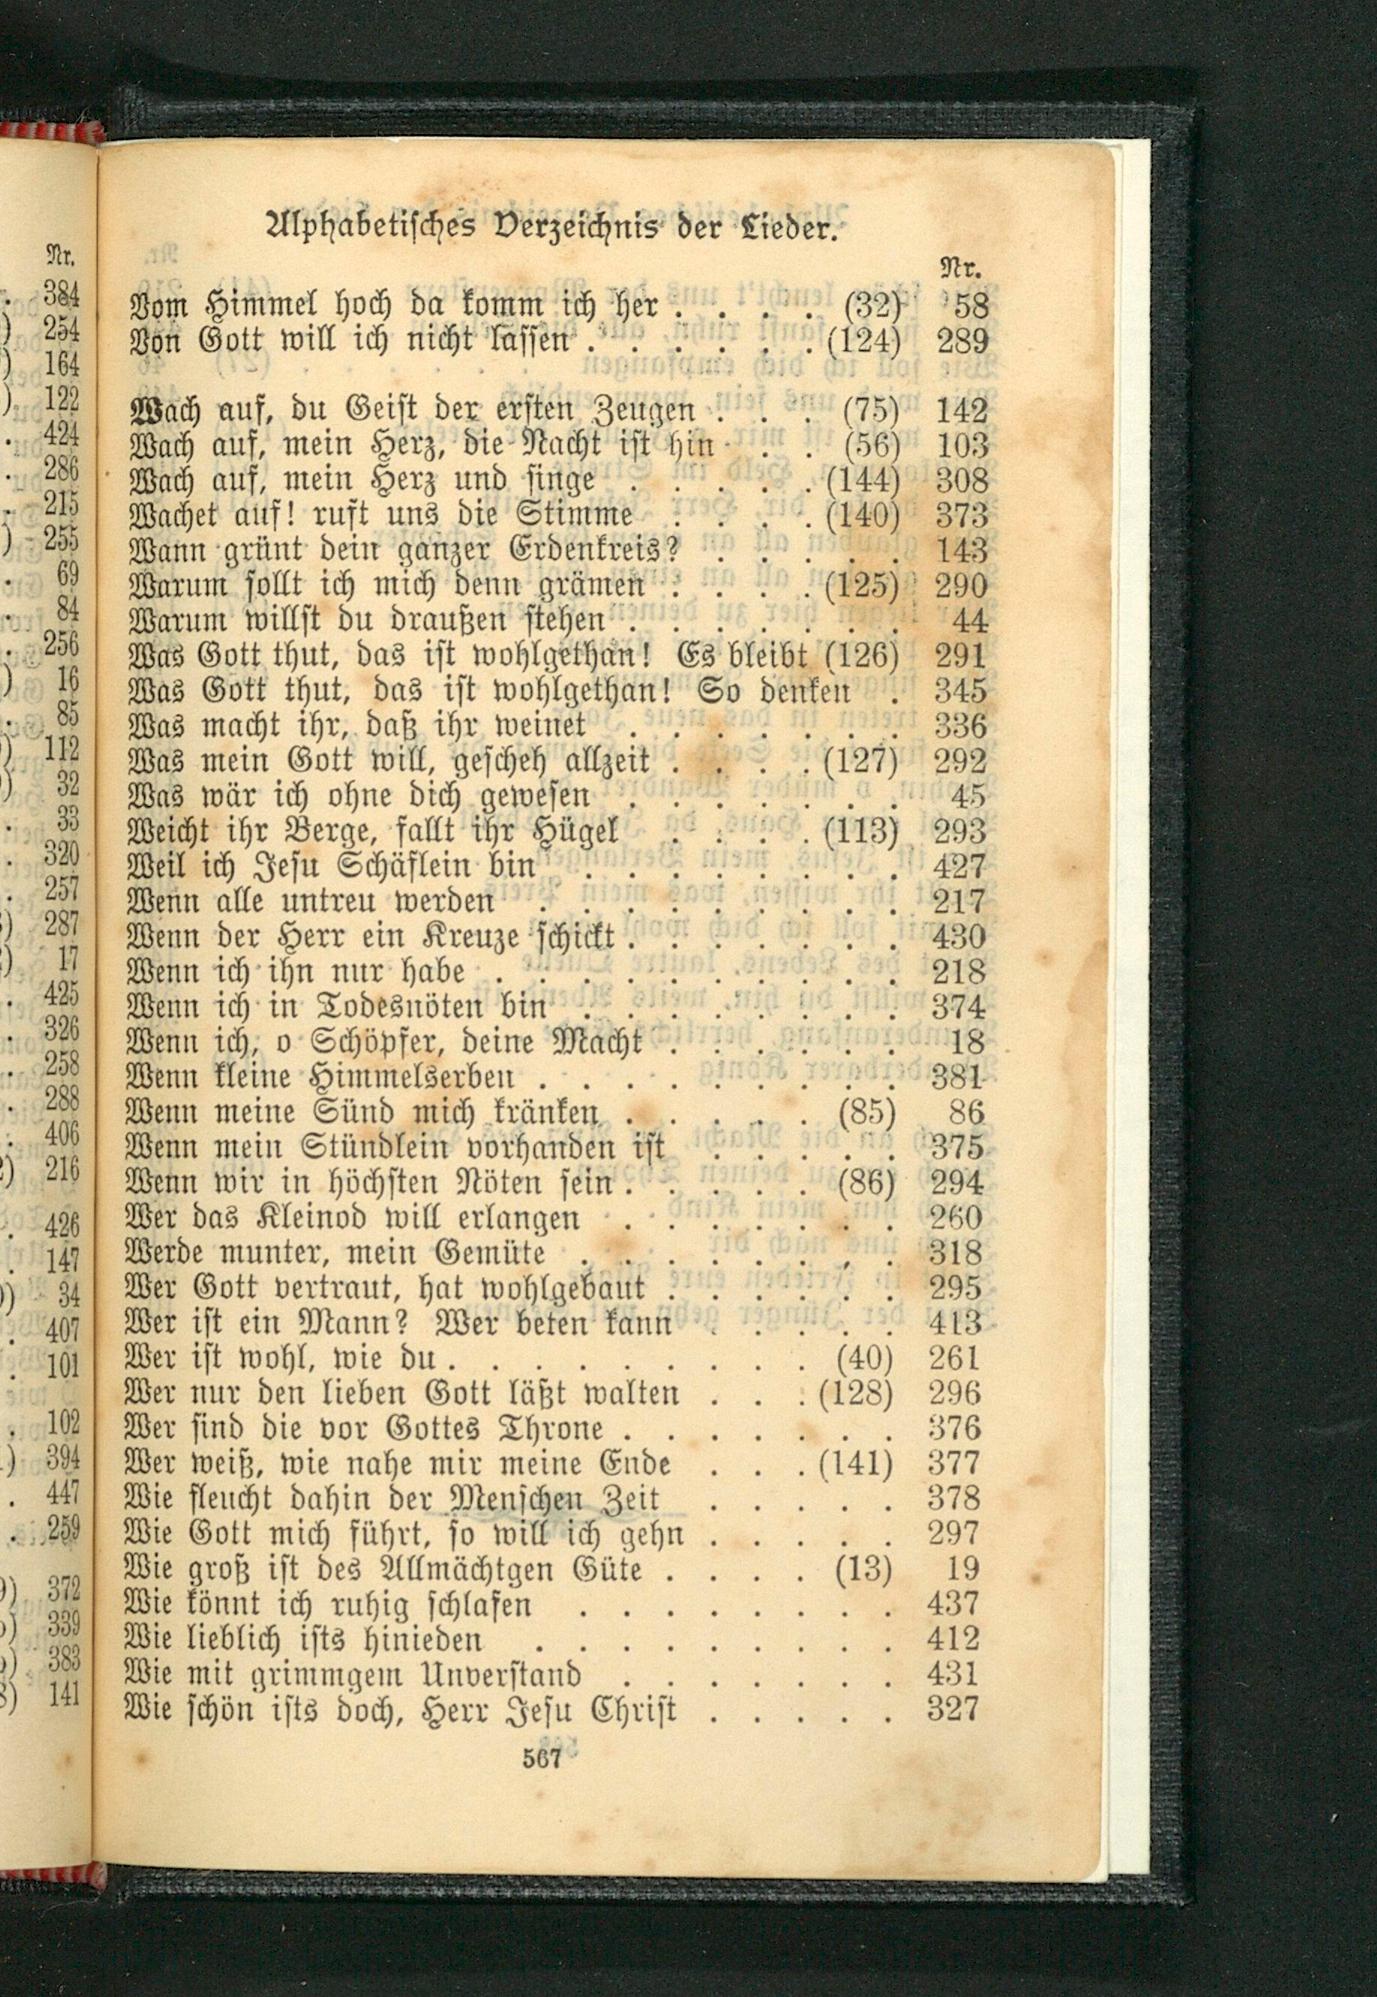 Alphabetisches Verzeichnis der Lieder.
Nr.
Vom Himmel hoch da komm ich her . . . . (32) 58
Von Gott will ich nicht lassen . . . . . . (124) 289
Wach auf, du Geist der ersten Zeugen . . . (75) 142
Wach auf, mein Herz, die Nacht ist hin . . (56) 103
Wach auf, mein Herz und singe . . . . . (144) 308
Wachet auf! ruft uns die Stimme . . . . (140) 373
Wann grünt dein ganzer Erdenkreis? . . . . . 143
Warum sollt ich mich denn grämen . . . . (125) 290
Warum willst du draußen stehen . . . . . . . 44
Was Gott thut, das ist wohlgethan! Es bleibt (126) 291
Was Gott thut, das ist wohlgethan! So denken . 345
Was macht ihr, daß ihr weinet . . . . . . . 336
Was mein Gott will, gescheh allzeit . . . . (127) 292
Was wär ich ohne dich gewesen . . . . . . . 45
Weicht ihr Berge, fallt ihr Hügel . . . . (113) 293
Weil ich Jesu Schäflein bin . . . . . . . . 427
Wenn alle untreu werden . . . . . . . . . 217
Wenn der Herr ein Kreuze schickt . . . . . . . 430
Wenn ich ihn nur habe . . . . . . . . . . 218
Wenn ich in Todesnöten bin . . . . . . . . 374
Wenn ich, o Schöpfer, deine Macht . . . . . . 18
Wenn kleine Himmelserben . . . . . . . . . 381
Wenn meine Sünd mich kränken . . . . . (85) 86
Wenn mein Stündlein vorhanden ist . . . . . 375
Wenn wir in höchsten Nöten sein . . . . . (86) 294
Wer das Kleinod will erlangen . . . . . . . 260
Werde munter, mein Gemüte . . . . . . . . 318
Wer Gott vertraut, hat wohlgebaut . . . . . . 295
Wer ist ein Mann? Wer beten kann . . . . . 413
Wer ist wohl, wie du . . . . . . . . . (40) 261
Wer nur den lieben Gott läßt walten . . . (128) 296
Wer sind die vor Gottes Throne . . . . . . . 376
Wer weiß, wie nahe mir meine Ende . . . (141) 377
Wie fleucht dahin der Menschen Zeit . . . . . 378
Wie Gott mich führt, so will ich gehn . . . . . 297
Wie groß ist des Allmächtgen Güte . . . . (13) 19
Wie könnt ich ruhig schlafen . . . . . . . . 437
Wie lieblich ists hinieden . . . . . . . . . 412
Wie mit grimmgem Unverstand . . . . . . . 431
Wie schön ists doch, Herr Jesu Christ . . . . . 327
567
Nr.
. 384
) 254
) 164
). 122
. 424
. 286
. 215
) 255
. 69
. 84
. 256
) 16
. 85
) 112
) 32
. 33
. 320
. 257
) 287
) 17
. 425
. 326
. 258
. 288
. 406
) 216
. 426
. 147
) 34
. 407
. 101
. 102
) 394
. 447
. 259
) 372
) 339
) 383
) 141